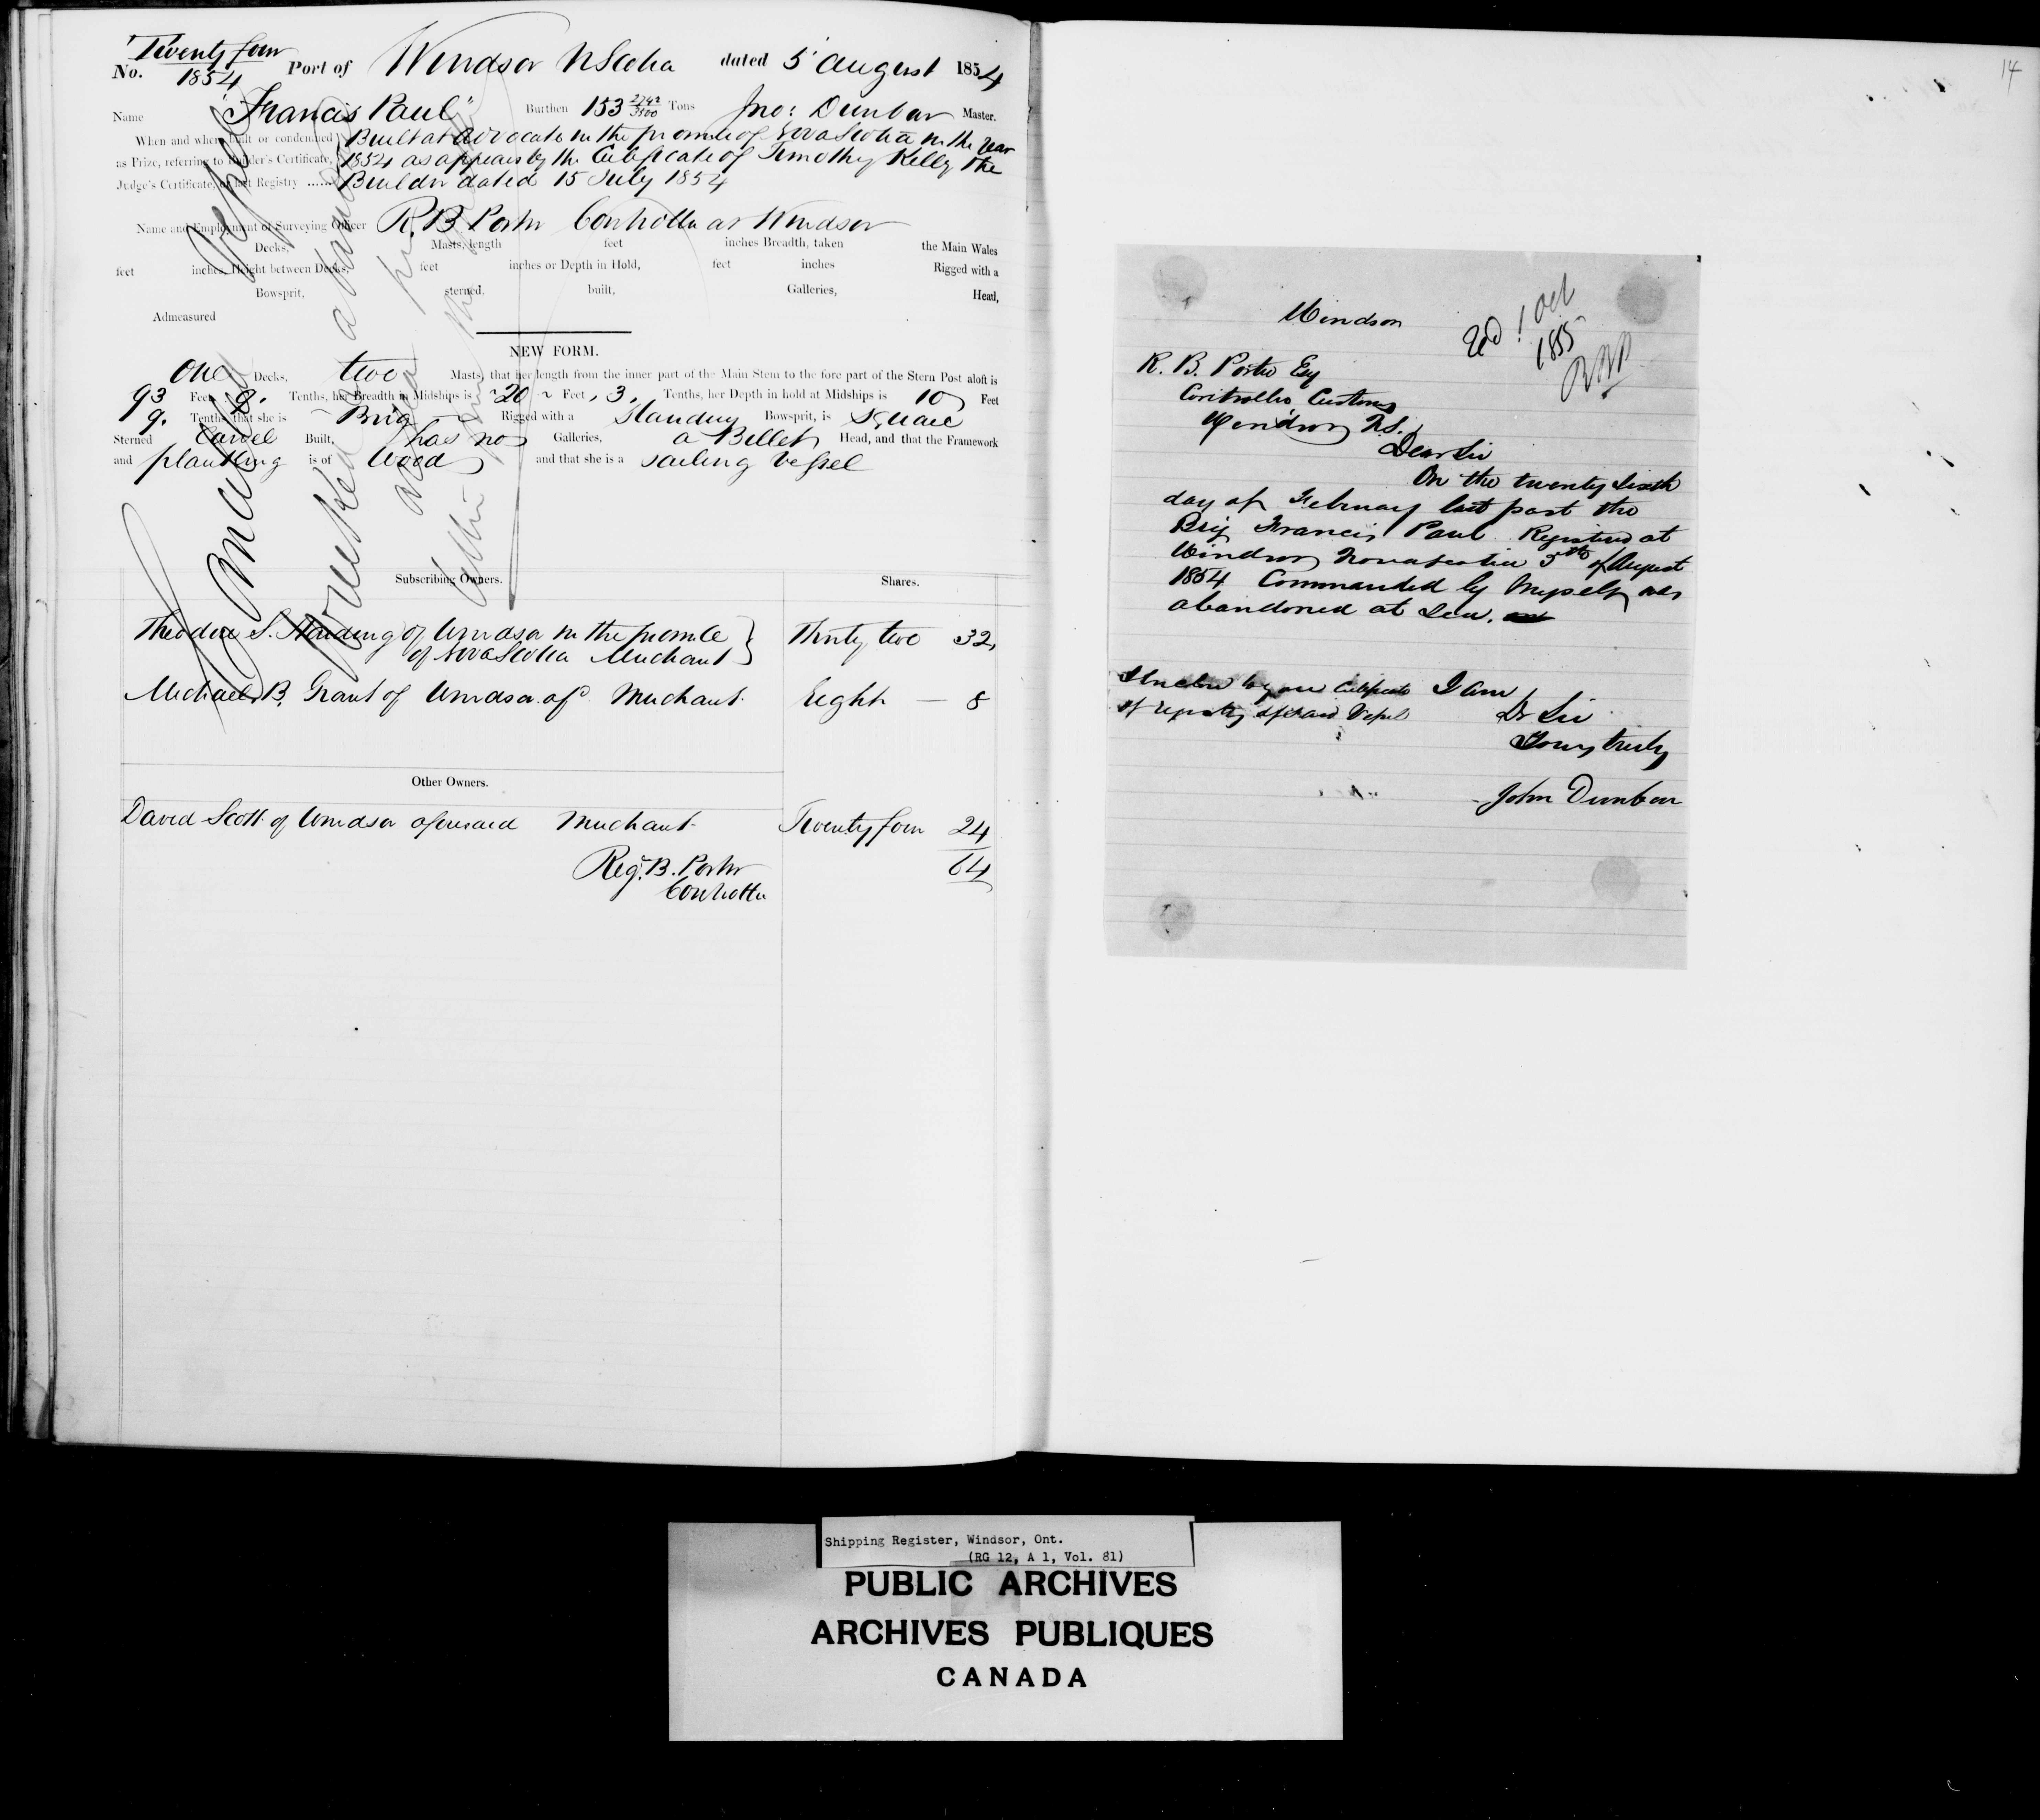 Twenty four
No. 1854 Port of Windsor NScotia dated 5 August 1854
Name "Francis Paul" Burthen 153 2742/3500 Tons Jno: Dunbar Master.
When and where built or condemned Built at Advocate in the province of Nova Scotia in the year
as Prize, referring to Builder's Certificate, 1854 as appears by the Certificate of Timothy Kelly the
Judge's Certificate, or last Registry ...... Builder dated 15 July 1854
Name and Employment of Surveying Officer R. B Porter Controller at Windsor
Decks, Masts, length feet inches Breadth, taken the Main Wales
feet inches, Height between Decks, feet inches or Depth in Hold, feet inches Rigged with a
Bowsprit, sterned, built, Galleries, Head,
Admeasured
NEW FORM.
One Decks, two Masts, that her length from the inner part of the Main Stem to the fore part of the Stern Post aloft is
93 Feet, 8. Tenths, her Breadth in Midships is 20 Feet, 3. Tenths, her Depth in hold at Midships is 10 Feet
9. Tenths, that she is Brig Rigged with a Standing Bowsprit, is Square
Sterned Carvel Built, has no Galleries, a Billet Head, and that the Framework
and planking is of Wood and that she is a sailing Vessel
Subscribing Owners. Shares.
Theodore S. Harding of Windsor in the province
of Nova Scotia Merchant Thirty two 32
Michael B. Grant of Windsor afd Merchant Eight — 8
Other Owners.
David Scott of Windsor aforesaid Merchant Twenty four 24
Reg. B. Porter 64
Controller
14
Windsor
1 Oct
1855
RBP
R. B. Porter Esq
Controller Customs
Windsor N.S.
Dear Sir
On the twenty sixth
day of February last past the
Brig Francis Paul Registered at
Windsor Novascotia 5th of August
1854 Commanded by Myself was
abandoned at Sea.
I am
of registry of said Vessel
Dr Sir
Yours truly
John Dunbar
Shipping Register, Windsor, Ont.
(RG 12, A 1, Vol. 81)
PUBLIC ARCHIVES
ARCHIVES PUBLIQUES
CANADA